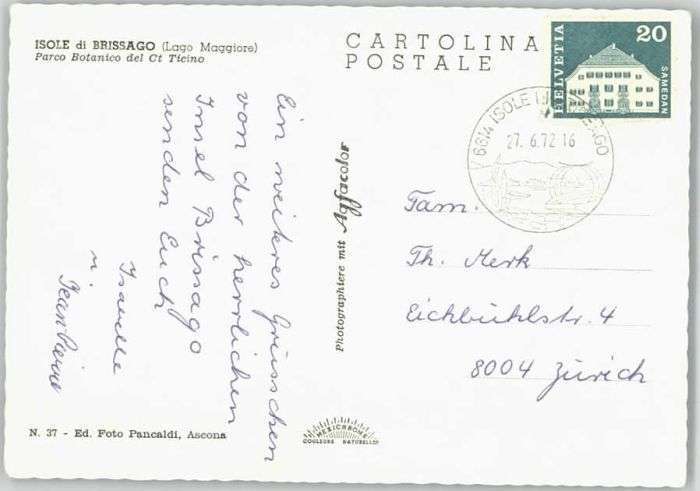 ISOLE di BRISSAGO (Lago Maggiore)
Parco Botanico del Ct Ticino
CARTOLINA
POSTALE
HELVETIA
20
SAMEDAN
6614 ISOLE DI BRISSAGO
27. 6.72 16
Ein weiteres Grüsschen
von der herrlichen
Insel Brissago
senden Euch
Isabelle
u.
Jean Pierre
Photographiere mit Agfacolor
Fam.
Th. Merk
Eichbühlstr. 4
8004 Zürich
N. 37 - Ed. Foto Pancaldi, Ascona
MEXICHROME
COULEURS NATURELLES